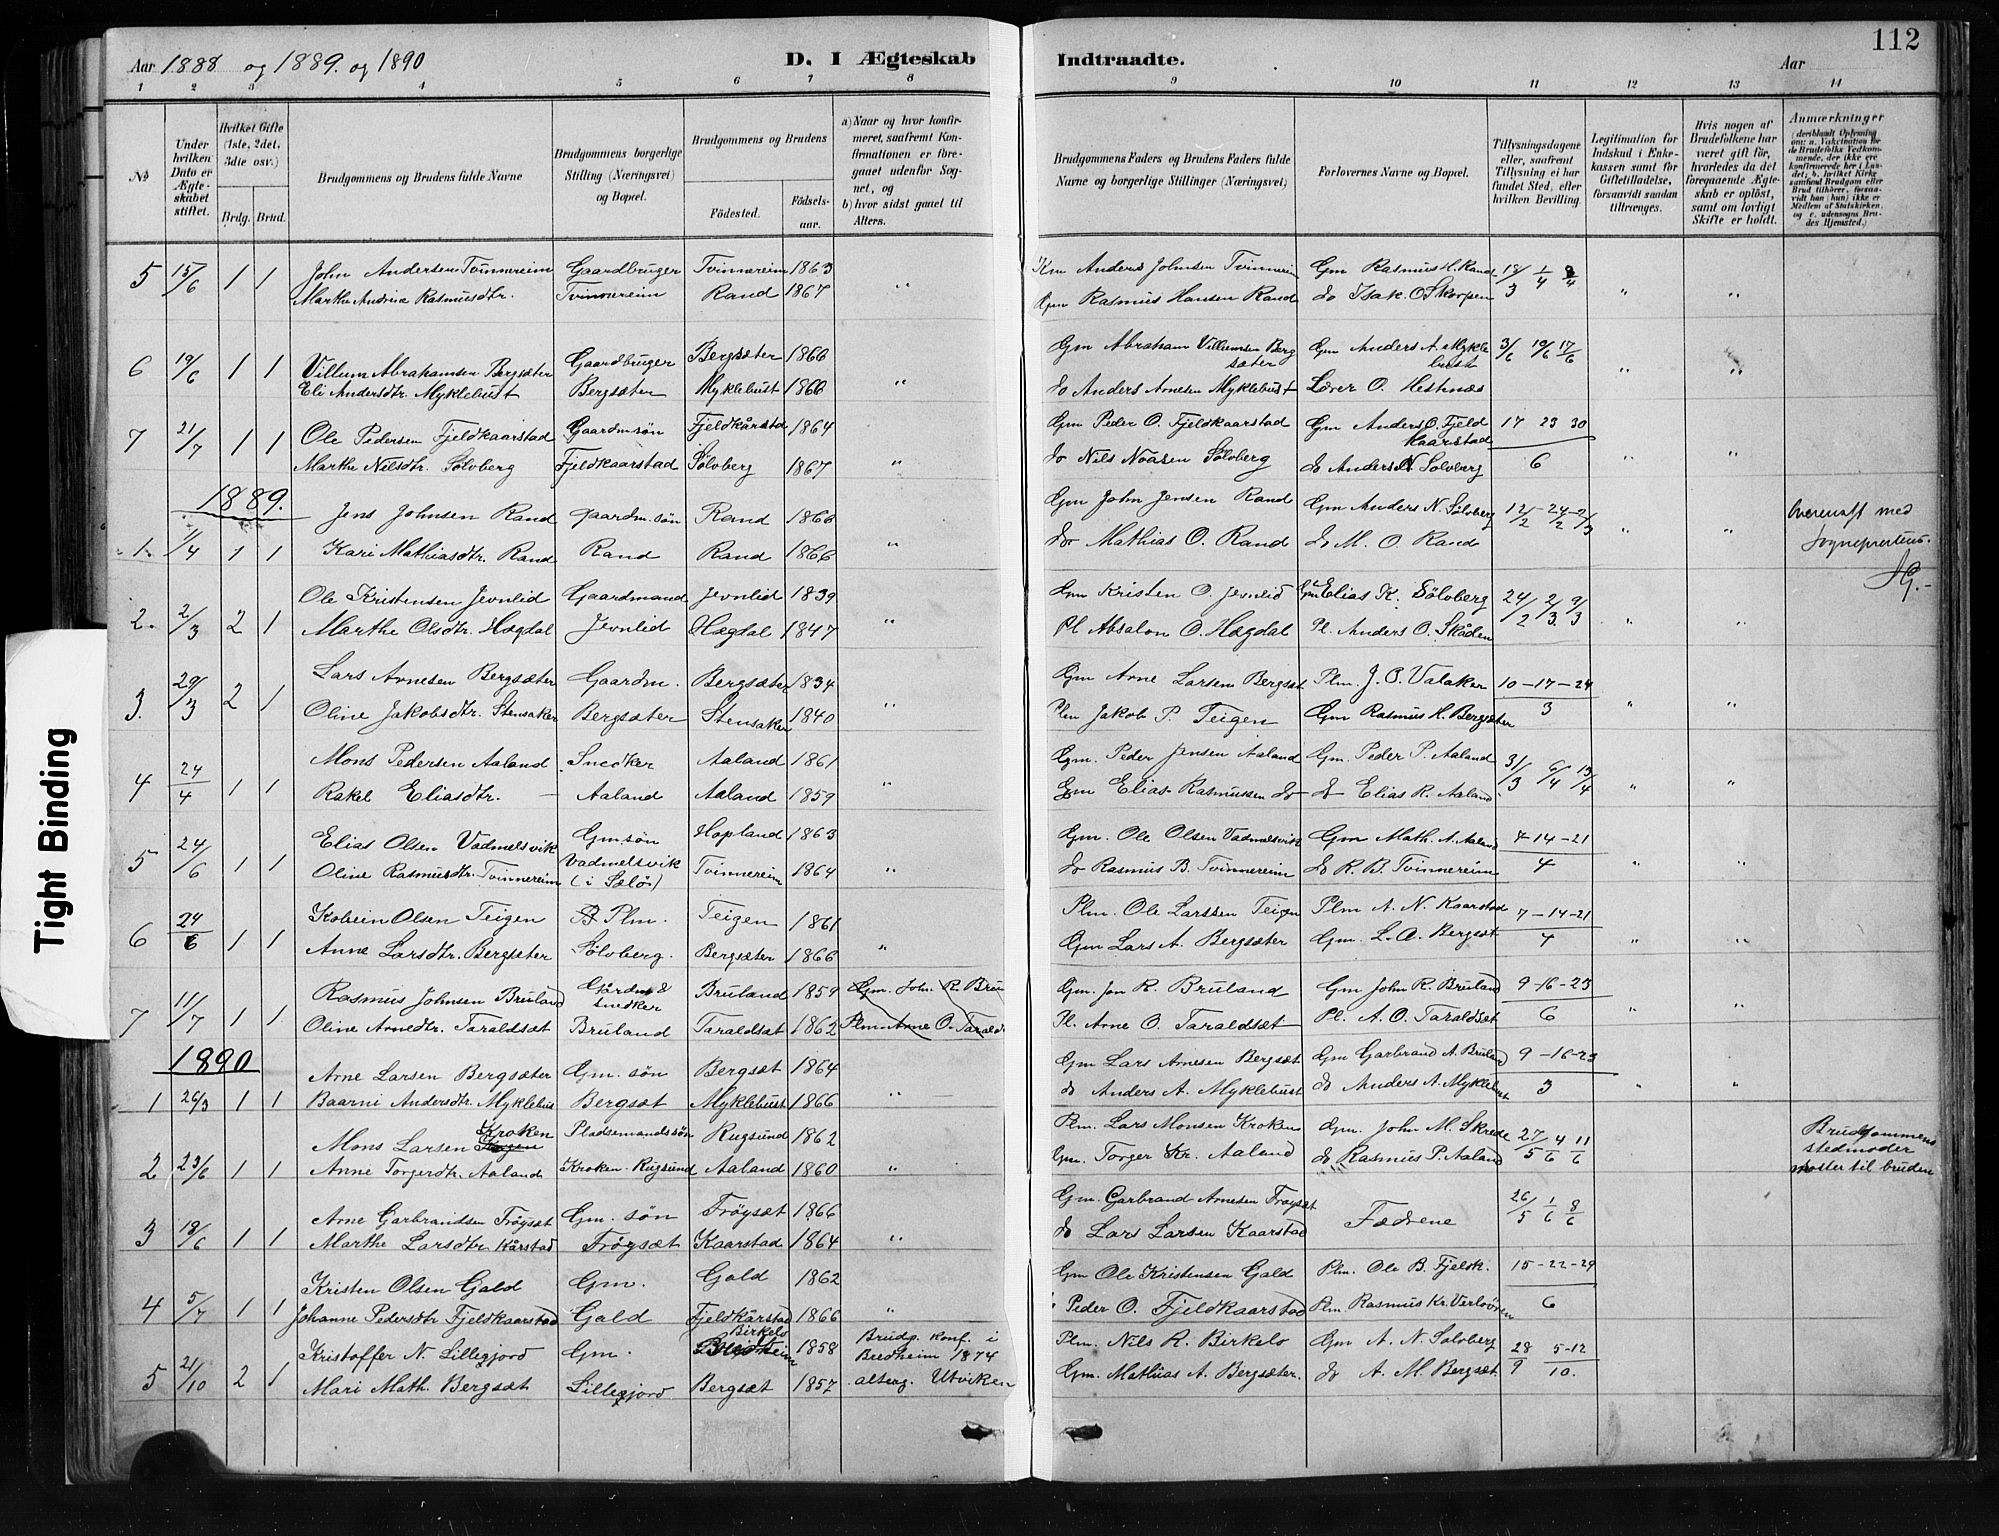 112
Aar 1888 og 1889. og 1890
D. I Ægteskab Indtraadte.
Aar
1 2 3 4 5 6 7 8 9 10 11 12 13 14
No
Under hvilken Dato er Ægteskabet stiftet.
Hvilket Gifte (1ste, 2det, 3die osv.)
Brdg. Brud.
Brudgommens og Brudens fulde Navne
Brudgommens borgerlige Stilling (Næringsvei) og Bopæl.
Brudgommens og Brudens
Födested.
Födselsaar.
a) Naar og hvor konfirmeret, saafremt Konfirmationen er foregaaet udenfor Sognet, og
b) hvor sidst gaaet til Alters.
Brudgommens Faders og Brudens Faders fulde Navne og borgerlige Stillinger (Næringsvei)
Forlovernes Navne og Bopæl.
Tillysningsdagene eller, saafremt Tillysning ei har fundet Sted, efter hvilken Bevilling.
Legitimation for Indskud i Enkekassen samt for Giftetilladelse, forsaavidt saadan tiltrænges.
Hvis nogen af Brudefolkene har været gift för, hvorledes da det foregaaende Ægteskab er oplöst, samt om lovligt Skifte er holdt.
Anmærkninger
5 15/6 1 1 John Andersen Tvinnereim Gaardbruger Tvinnereim 1863 " Km Anders Johnsen Tvinnereim Gm Rasmus H. Rand 18/3 1/4 8/4 " "
Marthe Andrine Rasmusdtr. Tvinnereim Rand 1867 Gm Rasmus Hansen Rand do Isak O Skorpen
6 19/6 1 1 Villum Abrahamsen Bergsæter Gaardbruger Bergsæter 1866 " Gm Abraham Villumsen Bergsæter Gm Anders A Myklebust 3/6 10/6 17/6 " "
Eli Andersdtr. Myklebust Bergsæter Myklebust 1866 do Anders Arnesen Myklebust Lærer O. Hestnæs
7 21/7 1 1 Ole Pedersen Fjeldkaarstad Gaardmsön Fjeldkårstad 1864 " Gm Peder O. Fjeldkaarstad Gm Anders O. Fjeldkaarstad 17 23 30 " "
Marthe Nilsdtr. Sölvberg Fjeldkaarstad Sölvberg 1867 do Nils Noasen Sölvberg do Anders N Solvberg 6
1889.
1. 1/4 1 1 Jens Johnsen Rand gaardm.sön Rand 1866 Gm John Jensen Rand Gm Anders N. Sölvberg 12/2 - 24/2 - 2/3 " " Overensst med
Kari Mathiasdtr. Rand Rand Rand 1866 do Mathias O. Rand do M. O. Rand Sogneprestens.
2. 2/3 2 1 Ole Kristensen Jevnlid Gaardmand Jevnlid 1839 " Gm Kristen O. Jevnlid Gm Elias K. Sölvberg 24/2 2/3 9/3 " "
Marthe Olsdtr. Hægdal Jevnlid Hægdal 1847 Pl Absalon O. Hægdal Pl. Anders O. Skåden
3. 29/3 2 1 Lars Arnesen Bergsæter Gaardm. Bergsæter 1834 " Gm Arne Larsen Bergsæt Plm. J. O. Valaker 10 - 17 - 24 " "
Oline Jakobsdtr. Stensaker Bergsæter Stensaker 1840 Plm Jakob P. Teigen Gm Rasmus H. Bergsæter 3
4 24/4 1 1 Mons Pedersen Aaland Snedker Aaland 1861 " Gm. Peder Jensen Aaland Gm. Peder P. Aaland 31/3 6/4 13/4 " "
Rakel Eliasdtr. — Aaland Aaland 1859 Gm Elias Rasmussen do do Elias R. Aaland
5 24/6 1 1 Elias Olsen Vadmelsvik Gm.sön Hopland 1863 " Gm. Ole Olsen Vadmelsvik Gm Math. A. Aaland 7 - 14 - 21 " "
Oline Rasmusdtr. Tvinnereim Vadmelsvik (i Selö) Tvinnereim 1864 do Rasmus B. Tvinnereim do R. B. Tvinnereim 4
6 24/6 1 1 Kolbein Olsen Teigen Plm. Teigen 1861 " Plm. Ole Larssen Teigen Plm A. N. Kaarstad 7 - 14 - 21 " "
Anne Larsdtr. Bergsæter Sölvberg. Bergsæter 1866 Gm Lars A. Bergsæter Gm. L. A. Bergsæt 4
7 11/7 1 1 Rasmus Johnsen Bruland Gårdm & snedker Bruland 1859 Gm. John R. Bru Gm. Jon R. Bruland Gm John R. Bruland 9 - 16 - 23 " "
Oline Arnedtr. Taraldsæt Bruland Taraldsæt 1862 Plm. Arne O. Tarald Pl. Arne O. Taraldsæt Pl. A. O. Taraldsæt 6
1890
1 26/3 1 1 Arne Larsen Bergsæter Gm. sön Bergsæt 1864 Gm Lars Arnesen Bergsæt Gm Garbrand A. Bruland 9 - 16 - 23 " "
Baarni Andersdtr. Myklebus Bergsæt Myklebust 1866 do Anders A. Myklebust do Anders A. Myklebust 3
2 23/6 1 1 Mons Larsen Kroken Pladsemandssön Rugsund 1862 " Plm. Lars Monsen Kroken Gm. John M. Skrede 27/5 4/6 11/6 Brudgommens stedmoder
Anne Torgerdtr. Aaland Kroken Rugsund Aaland 1860 Gm. Torger Kr. Aaland do Rasmus P. Aaland moster til bruden
3 18/6 1 1 Arne Garbrandsen Tröysæt Gm. sön Tröysæt 1866 " Gm. Garbrand Arnesen Tröysæt Fædrene 26/5 1/6 8/6
Marthe Larsdtr Kårstad Tröysæt Kaarstad 1864 do Lars Larsen Kaarstad
4 5/7 1 1 Kristen Olsen Gald Gm. Gald 1862 " Gm Ole Kristensen Gald Plm. Ole B. Fjelsk. 15 - 22 - 29
Johanne Pedersdtr Fjeldkaarstad Gald Fjeldkårstad 1866 Peder O. Fjeldkaarstad Plm Rasmus Kr. 6
5 21/10 2 1 Kristoffer N. Lillegjord Gm. Birkelo 1858 Brudg. konf. i Bredheim 1874 Plm. Nils R. Birkelo Gm A. N. Solvberg 28/9 5-12/10.
Mari Math. Bergsæt Lillegjord Bergsæt 1857 alterg. Utviken Gm. Mathias A. Bergsæter. do A. M. Bergsæt
Tight Binding